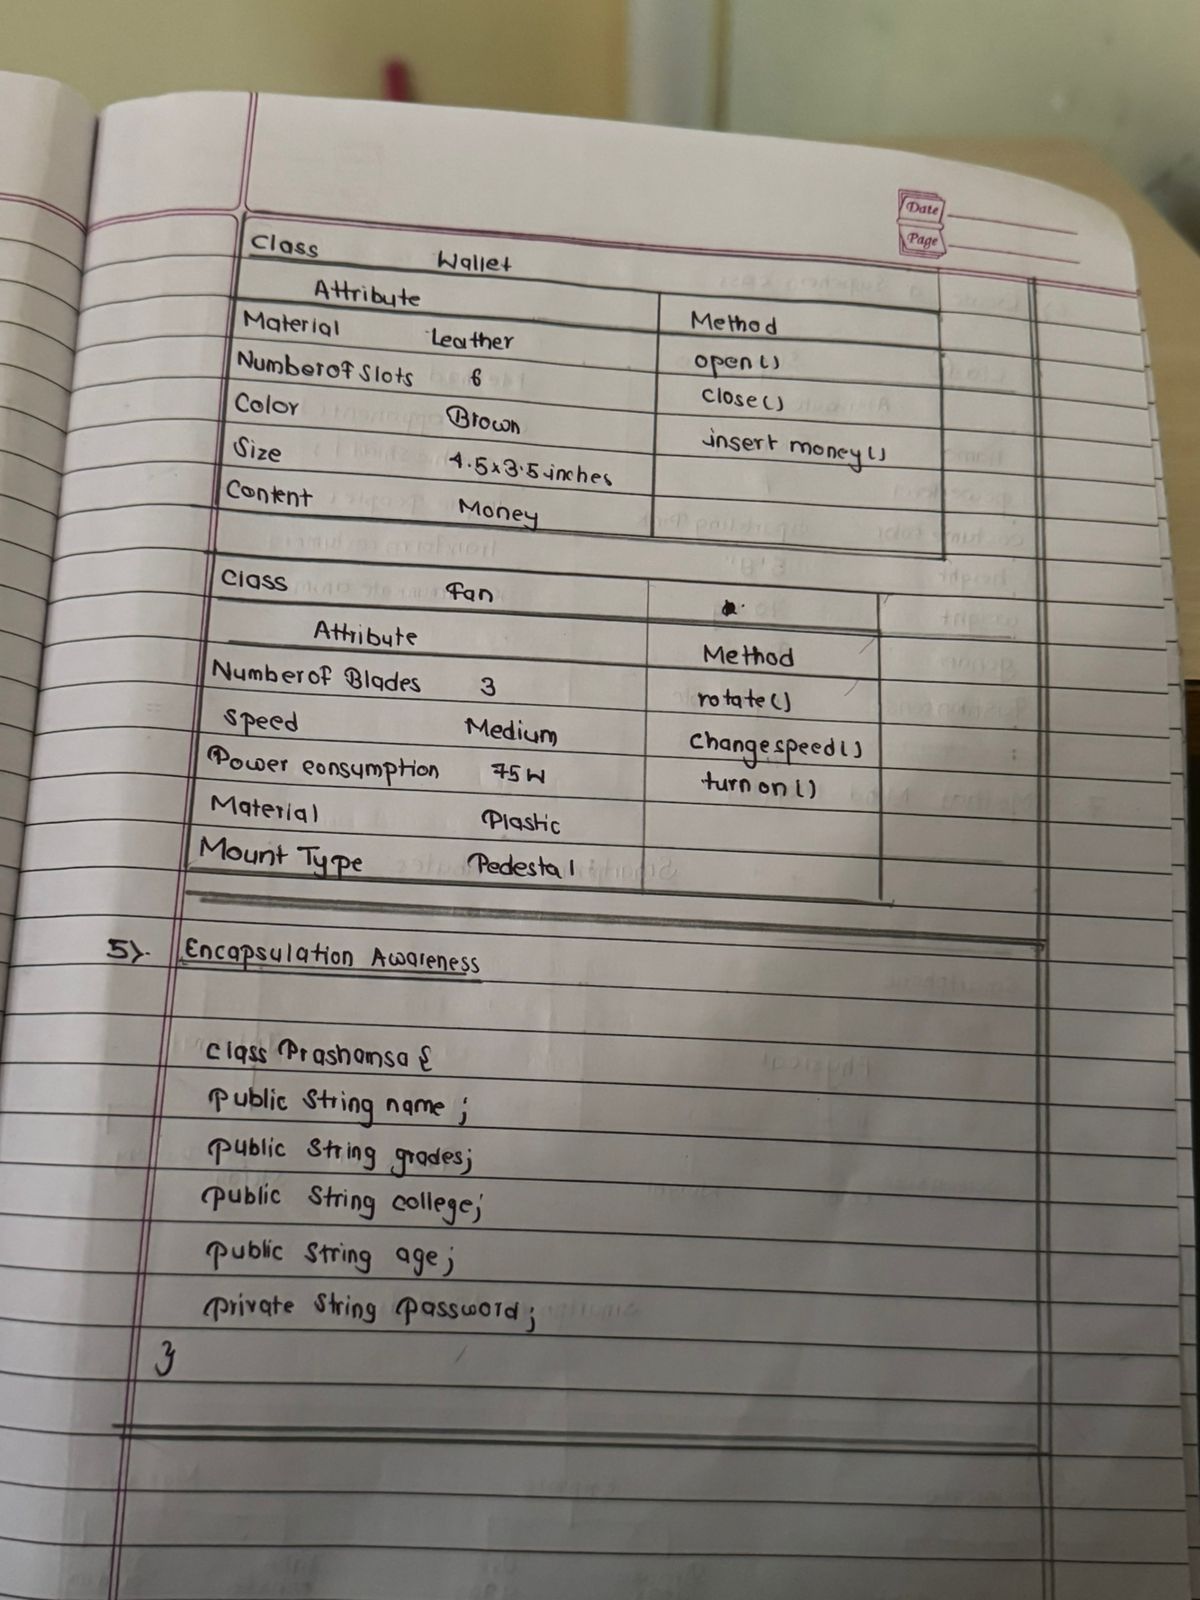 Date
Page
Class Wallet
Attribute Method
Material Leather open()
Number of Slots 6 close()
Color Brown insert money()
Size 4.5x3.5 inches
Content Money
Class Fan
Attribute Method
Number of Blades 3 rotate()
Speed Medium Change speed()
Power consumption 75W turn on()
Material Plastic
Mount Type Pedestal
5). Encapsulation Awareness
class Prashamsa {
public String name ;
public String grades;
public String college;
public String age;
private String password;
}